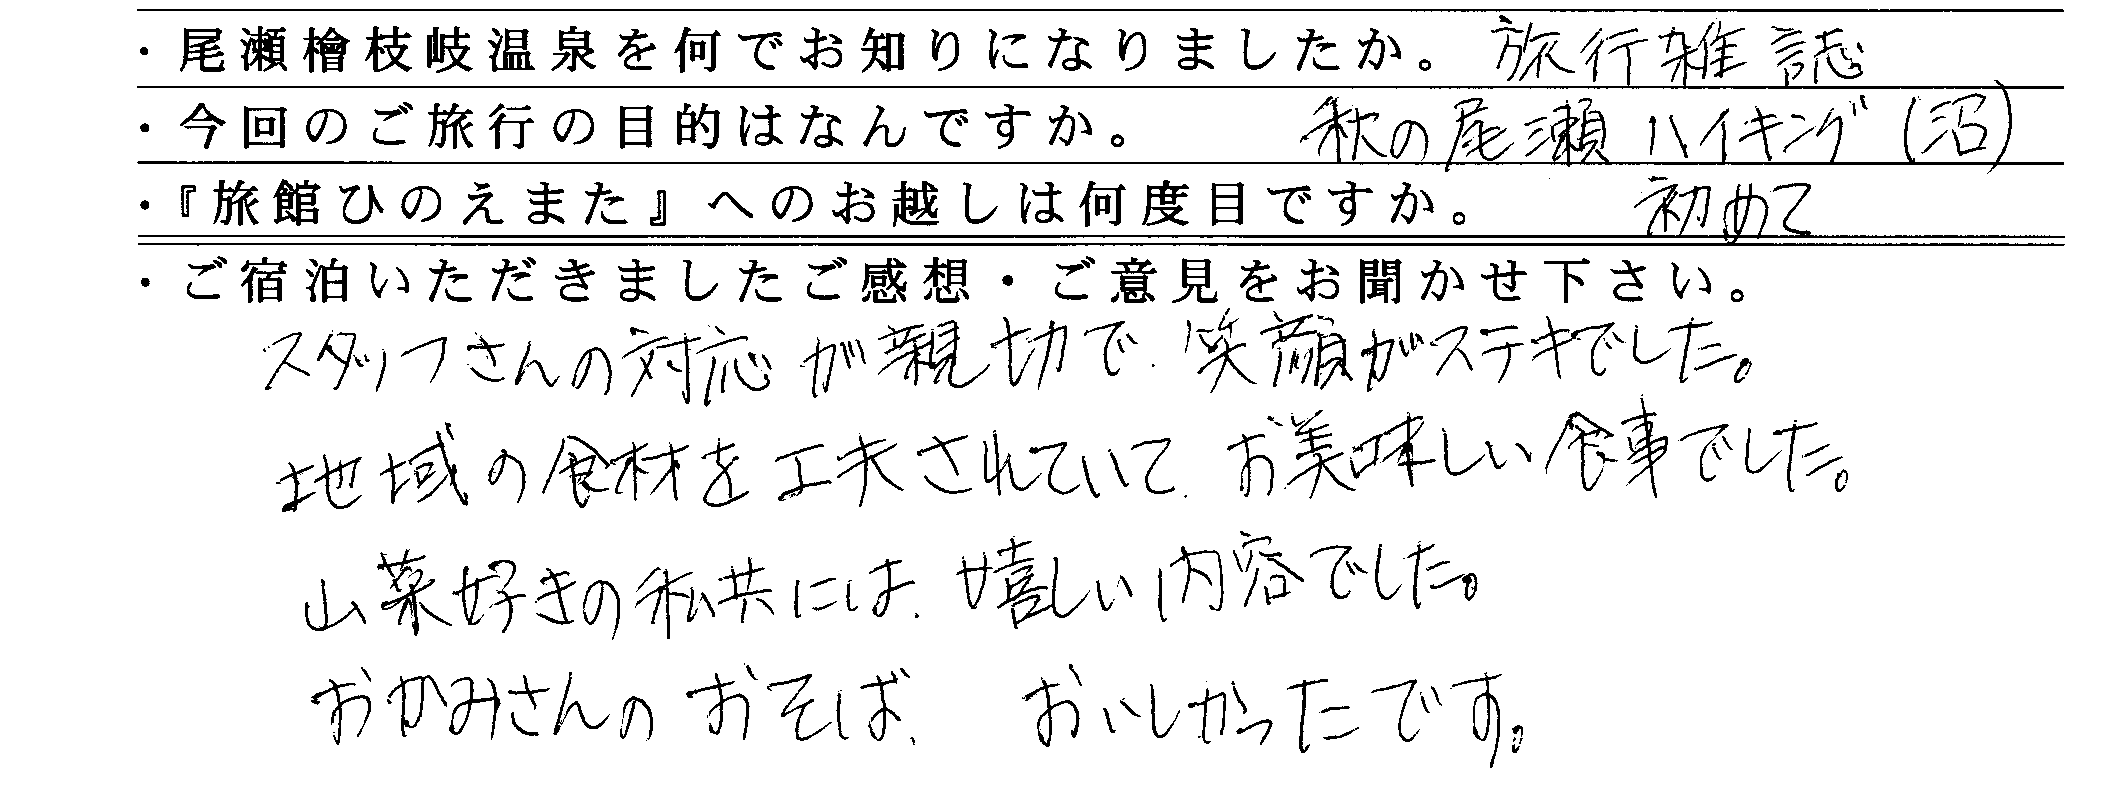 ・尾瀬檜枝岐温泉を何でお知りになりましたか。 旅行雑誌
・今回のご旅行の目的はなんですか。 秋の尾瀬ハイキング(沼)
・『旅館ひのえまた』へのお越しは何度目ですか。 初めて
・ご宿泊いただきましたご感想・ご意見をお聞かせ下さい。
スタッフさんの対応が親切で、笑顔がステキでした。
地域の食材を工夫されていて、お美味しい食事でした。
山菜好きの私共には、嬉しい内容でした。
おかみさんのおそば、おいしかったです。